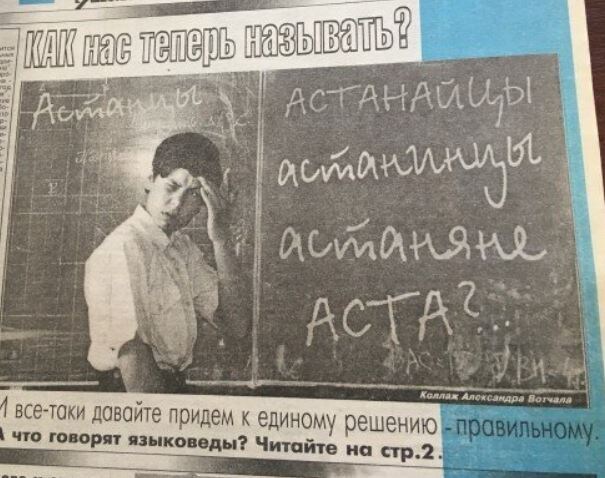 КАК нас теперь называть?
Астанцы
АСТАНАЙЦЫ
астанинцы
астаняне
АСТА?...
Коллаж Александра Вотчала
И все-таки давайте придем к единому решению - правильному.
А что говорят языковеды? Читайте на стр.2.